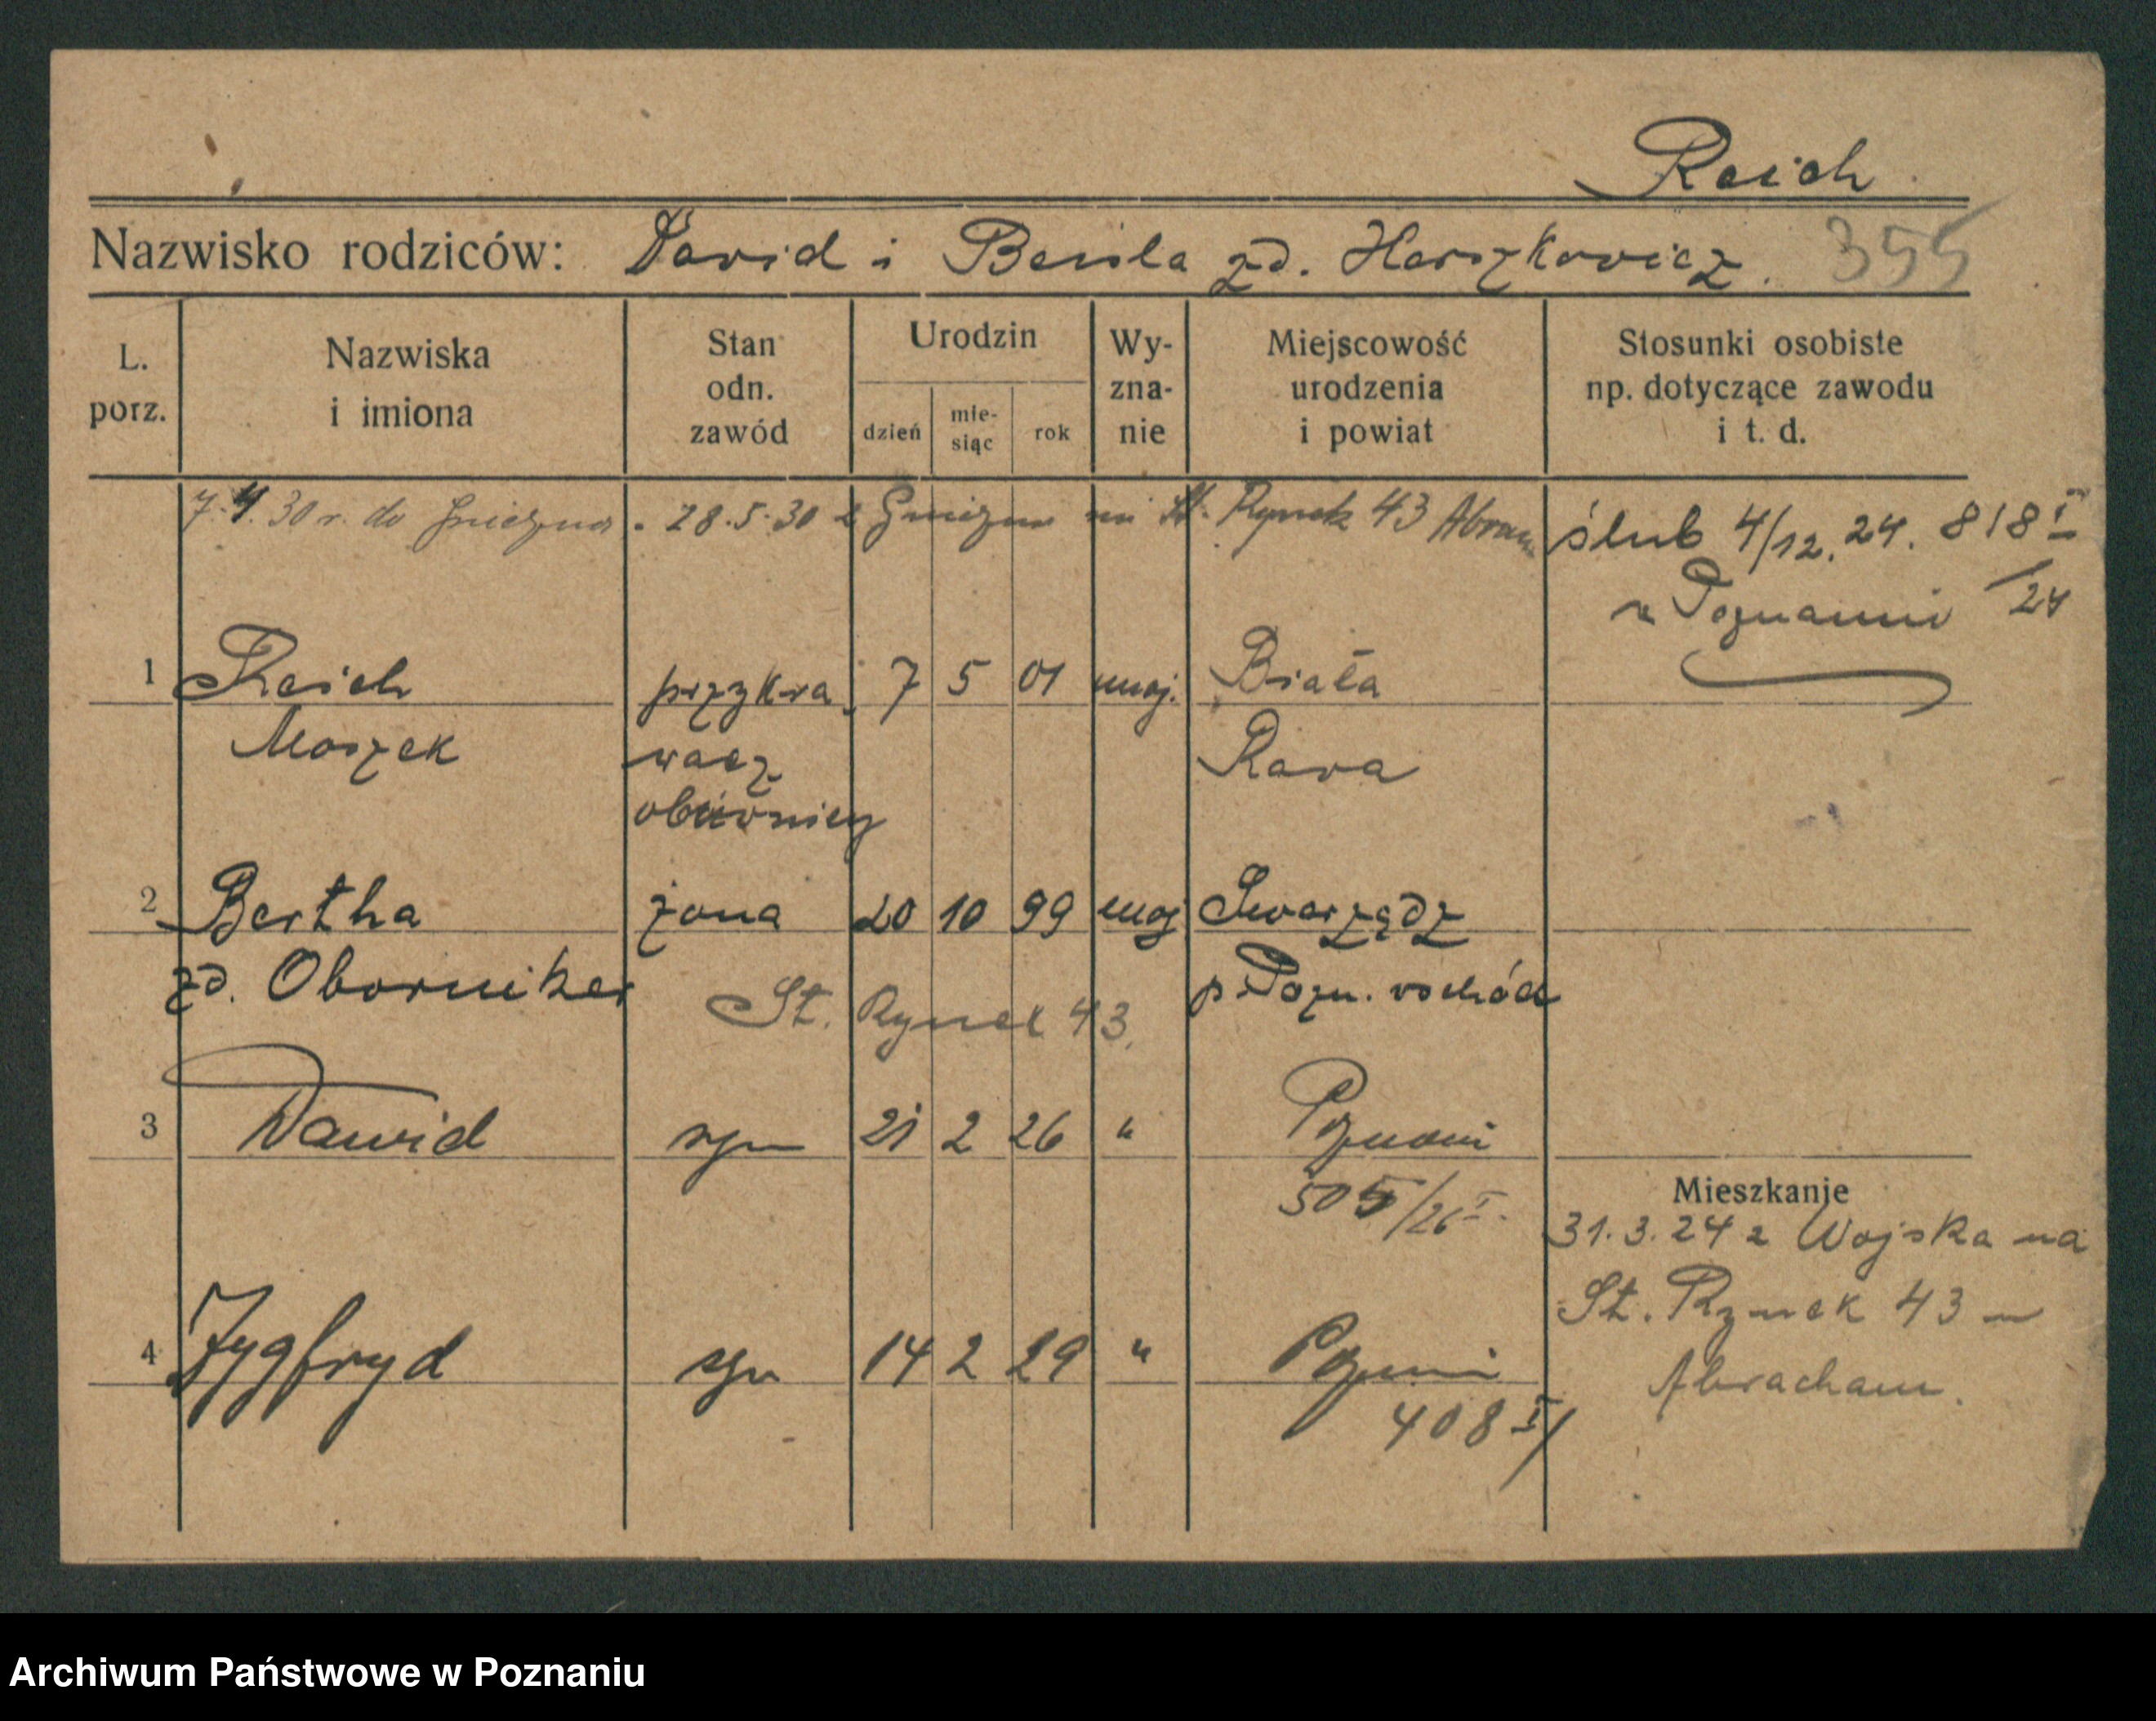 Reich
Nazwisko rodziców: Dawid i Bersla zd. Herszkowicz. 355
L. porz.
Nazwiska i imiona
Stan odn. zawód
Urodzin
dzień
mie-siąc
rok
Wy-zna-nie
Miejscowość urodzenia i powiat
Stosunki osobiste np. dotyczące zawodu i t. d.
7.4.30 r. do Gniezna. 28.5.30 z Gniezna na St. Rynek 43 Abram
ślub 4/12.24. 818 I
w Poznaniu /24
1 Reich przykra 7 5 01 mojż. Biała
Moszek wacz Rawa
obuwniczy
2 Bertha żona 20 10 99 mojż Swarzędz
zd. Oborniker p. Pozn. wschód
St. Rynek 43.
3 Dawid syn 21 2 26 " Poznań
505/26 I.
Mieszkanie
31.3.24 z Wojska na
St. Rynek 43 u
Abracham.
4 Zygfryd syn 14 2 29 " Poznań
408 I/
Archiwum Państwowe w Poznaniu